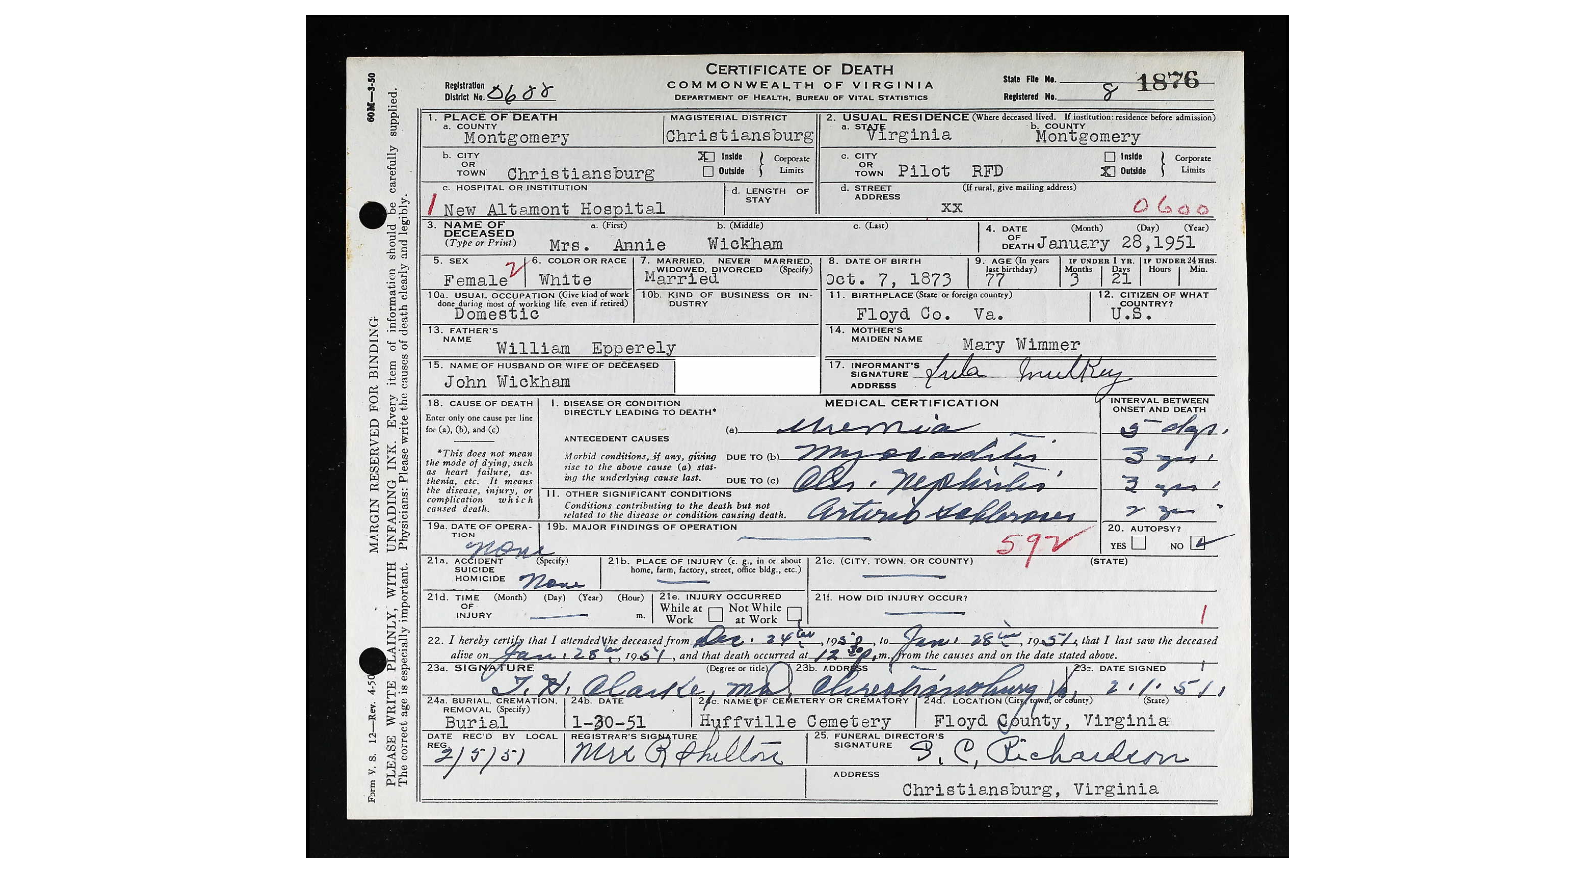 CERTIFICATE OF DEATH
COMMONWEALTH OF VIRGINIA
DEPARTMENT OF HEALTH, BUREAU OF VITAL STATISTICS
Registration District No. 0688
State File No. 1876
Registered No. 8
60M—3-50
MARGIN RESERVED FOR BINDING
PLEASE WRITE PLAINLY, WITH UNFADING INK. Every item of information should be carefully supplied.
The correct age is especially important. Physicians: Please write the causes of death clearly and legibly.
Form V. S. 12—Rev. 4-50
1. PLACE OF DEATH
a. COUNTY Montgomery
MAGISTERIAL DISTRICT Christiansburg
2. USUAL RESIDENCE (Where deceased lived. If institution: residence before admission)
a. STATE Virginia
b. COUNTY Montgomery
b. CITY OR TOWN Christiansburg
X Inside Outside } Corporate Limits
c. CITY OR TOWN Pilot RFD
Inside X Outside } Corporate Limits
c. HOSPITAL OR INSTITUTION
1 New Altamont Hospital
d. LENGTH OF STAY
d. STREET ADDRESS (If rural, give mailing address)
xx 0600
3. NAME OF DECEASED (Type or Print)
a. (First) b. (Middle) c. (Last)
Mrs. Annie Wickham
4. DATE OF DEATH (Month) (Day) (Year)
January 28,1951
5. SEX Female 2
6. COLOR OR RACE White
7. MARRIED, NEVER MARRIED, WIDOWED, DIVORCED (Specify) Married
8. DATE OF BIRTH Oct. 7, 1873
9. AGE (In years last birthday) 77
IF UNDER 1 YR. Months 3 Days 21
IF UNDER 24 HRS. Hours Min.
10a. USUAL OCCUPATION (Give kind of work done during most of working life even if retired) Domestic
10b. KIND OF BUSINESS OR INDUSTRY
11. BIRTHPLACE (State or foreign country) Floyd Co. Va.
12. CITIZEN OF WHAT COUNTRY? U.S.
13. FATHER'S NAME William Epperely
14. MOTHER'S MAIDEN NAME Mary Wimmer
15. NAME OF HUSBAND OR WIFE OF DECEASED
John Wickham
17. INFORMANT'S SIGNATURE Lula Mulkey
ADDRESS
18. CAUSE OF DEATH
Enter only one cause per line for (a), (b), and (c)
*This does not mean the mode of dying, such as heart failure, asthenia, etc. It means the disease, injury, or complication which caused death.
MEDICAL CERTIFICATION
INTERVAL BETWEEN ONSET AND DEATH
I. DISEASE OR CONDITION DIRECTLY LEADING TO DEATH*
(a) Uremia 5 dys.
ANTECEDENT CAUSES
Morbid conditions, if any, giving rise to the above cause (a) stating the underlying cause last.
DUE TO (b) Myocarditis 3 yrs.
DUE TO (c) Chr. Nephritis 3 yrs.
II. OTHER SIGNIFICANT CONDITIONS
Conditions contributing to the death but not related to the disease or condition causing death.
Arterio
19a. DATE OF OPERATION None
19b. MAJOR FINDINGS OF OPERATION
592
20. AUTOPSY?
YES NO
21a. ACCIDENT SUICIDE HOMICIDE (Specify) None
21b. PLACE OF INJURY (e. g., in or about home, farm, factory, street, office bldg., etc.)
21c. (CITY, TOWN, OR COUNTY) (STATE)
21d. TIME OF INJURY (Month) (Day) (Year) (Hour) m.
21e. INJURY OCCURRED
While at Work Not While at Work
21f. HOW DID INJURY OCCUR?
1
22. I hereby certify that I attended the deceased from Dec. 24, 1950, to Jan. 28, 1951, that I last saw the deceased
alive on Jan. 28, 1951, and that death occurred at 12 30 p.m., from the causes and on the date stated above.
23a. SIGNATURE (Degree or title) T. H. Clarke, MD.
23b. ADDRESS Christiansburg Va,
23c. DATE SIGNED 2.1.51
24a. BURIAL, CREMATION, REMOVAL (Specify) Burial
24b. DATE 1-30-51
24c. NAME OF CEMETERY OR CREMATORY Huffville Cemetery
24d. LOCATION (City, town, or county) (State) Floyd County, Virginia
DATE REC'D BY LOCAL REG. 2/5/51
REGISTRAR'S SIGNATURE Mrs R Shelton
25. FUNERAL DIRECTOR'S SIGNATURE B. C. Richardson
ADDRESS
Christiansburg, Virginia